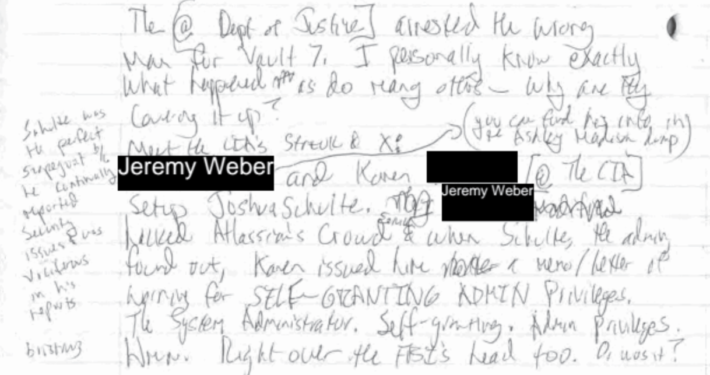 The [@ Dept of Justice] arrested the wrong
man for Vault 7. I personally know exactly
what happened as do many others – why are they
covering it up?
(you can find his info in
the Ashley Madison dump)
Meet the CIA's
Jeremy Weber and Karen [@ The CIA]
Setup Joshua Schulte. Jeremy Weber
hacked Atlassian's Crowd & when Schulte, the admin
found out, Karen issued him a memo/letter of
warning for SELF-GRANTING ADMIN Privileges.
The System Administrator. Self-granting. Admin privileges.
Right over the head too. Or was it?
Schulte was
the perfect
scapegoat b/c
he continually
reported
security
issues & was
vociferous
in his
reports